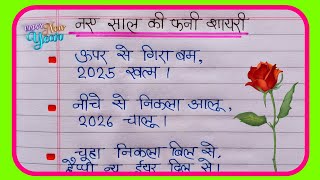 Happy New Year
नए साल की फनी शायरी
ऊपर से गिरा बम,
2025 खत्म।
नीचे से निकला आलू,
2026 चालू।
चूहा निकला बिल से,
हैप्पी न्यू ईयर दिल से।